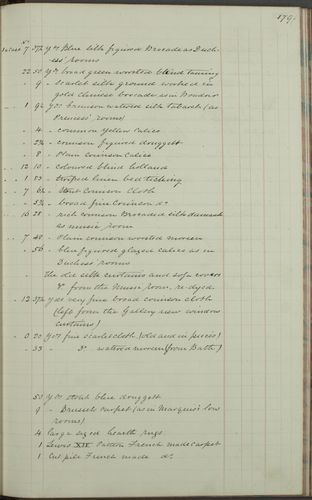 179
No
7 37½ yds Blue silk figured Brocade as Duch-
ess' rooms
22 50 yds broad green worsted blind
- 9 - Scarlet silk ground worked in
gold chinese brocade as in Boudoir
1 9½ yds Crimson watered silk tabaret (as
Princess' rooms)
- 4 - common Yellow calico
- 2¾ - crimson figured druggett
- 8 - Plain crimson calico
12 10 - coloured blind holland
1 23 - Striped linen bed ticking
7 6¼ - Stout Crimson Cloth
- 5¾ - broad fine Crimson do
16 28 - rich crimson Brocaded silk damask
as music room
7 48 - Plain crimson worsted moreen
- 56 - blue figured glazed calico as in
Duchess rooms
The old silk curtains and sofa covers
&c from the Music room, re-dyed
12 37½ yds very fine broad crimson cloth
(left from the Gallery new window
curtains)
0 20 yds fine scarlet cloth (old and in pieces)
- 33 - Do watered moreen (from Bath)
50 yds stout blue druggett
9 - Brussels carpet (as in Marquis's low
rooms)
4 large sized hearth rugs
1 Lewis XIV Pattern French made carpet
1 Cut pile French made do